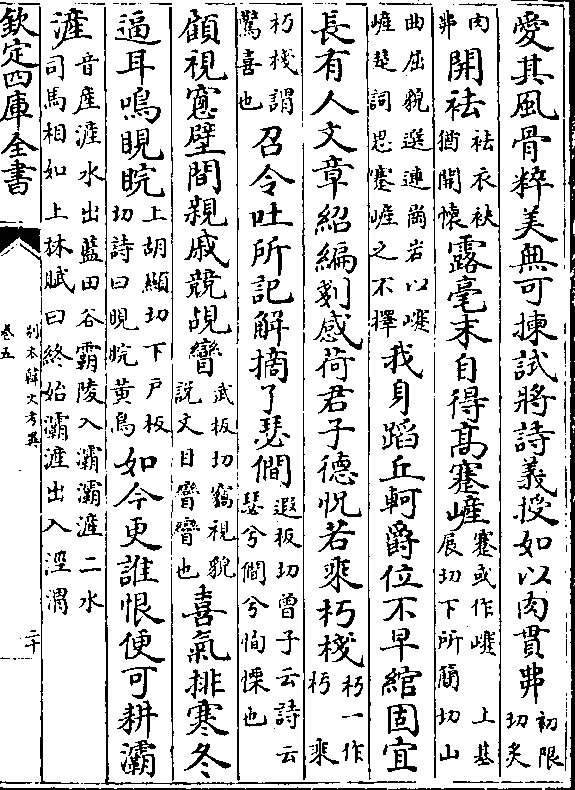 愛其風骨粹美無可揀試將詩義授如以肉貫丳初限切炙
肉丳開袪袪衣袂猶開懷露毫末自得高蹇嵼蹇或作㠾上基展切下所簡切山
曲屈貌選連崗岩以㠾嵼楚詞思蹇嵼之不擇我身蹈丘軻爵位不早綰固宜
長有人文章紹編剗感荷君子德怳若乘朽棧朽一作朽乘
朽棧謂驚喜也召令吐所記解摘了瑟僩遐板切曾子云詩云瑟兮僩兮恂慄也
顧視窻壁間親戚競覘矕武板切竊視貌說文目矕矕也喜氣排寒冬
逼耳鳴睍睆上胡顯切下戸板切詩曰睍睆黃鳥如今更誰恨便可耕灞
滻音産滻水出藍田谷霸陵入灞灞滻二水司馬相如上林賦曰終始灞滻出入涇渭
欽定四庫全書
别本韓文考異
卷五
二十